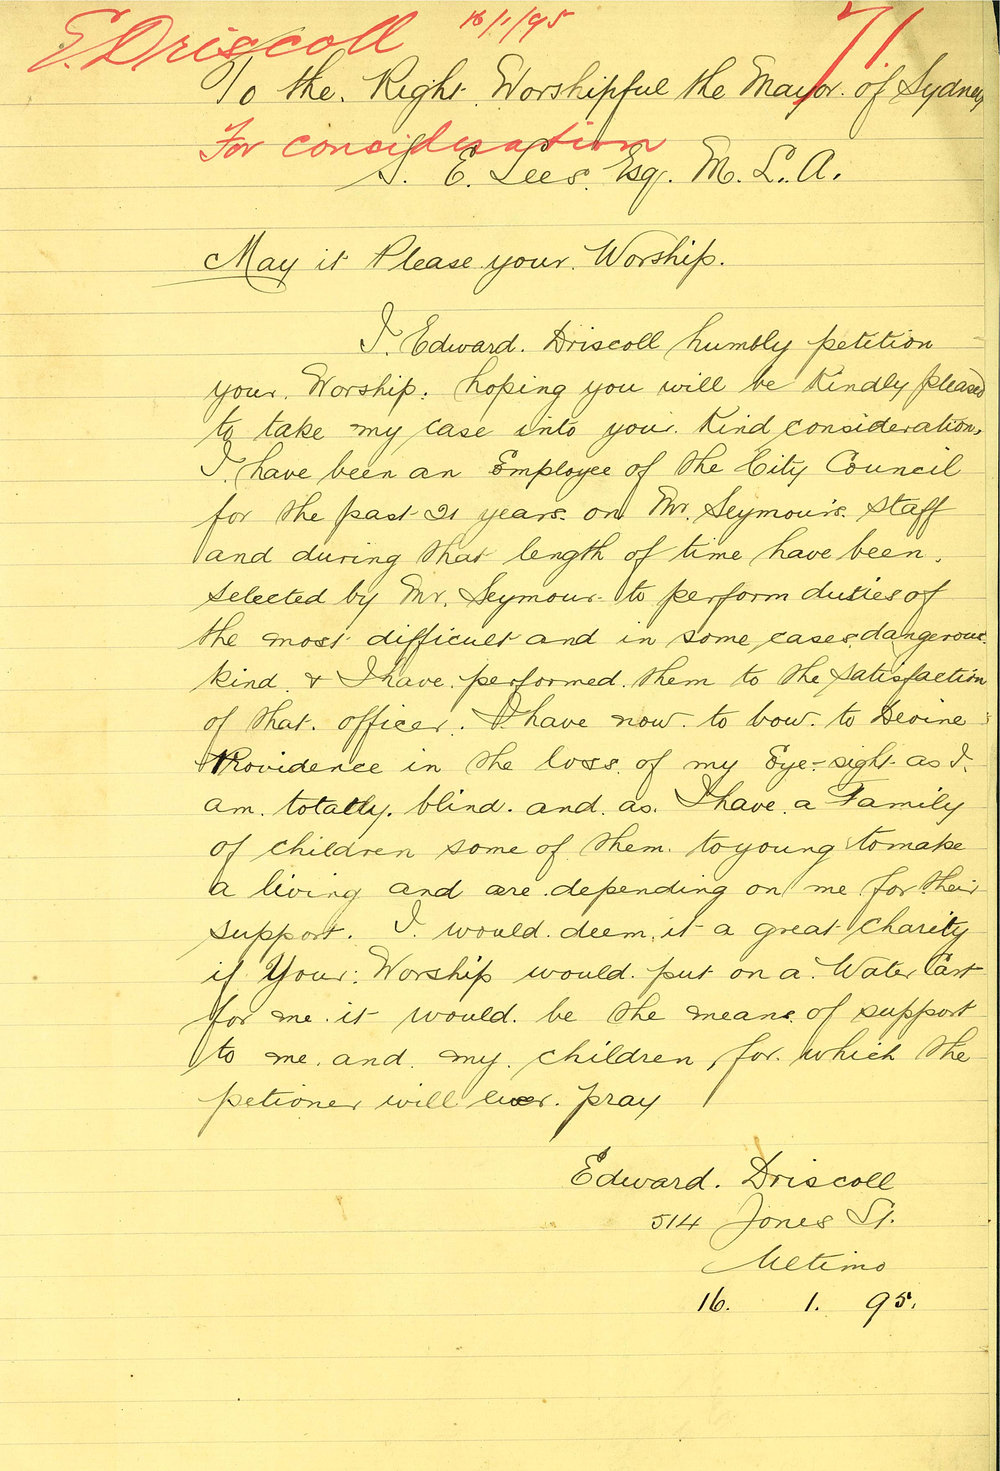 E. Driscoll 16/1/95 71.
To the. Right. Worshipful the Mayor. of Sydney
For consideration
S. E. Lees. Esq. M. L. A.
May it Please your. Worship.
I. Edward. Driscoll humbly petition
your. Worship. hoping you will be Kindly pleased
to take my case into your. Kind consideration,
I have been an Employee of the City Council
for the past 21 years. on Mr. Seymour's. staff
and during that length of time have been.
selected by Mr. Seymour to perform duties of
the most difficult and in some cases, dangerous
kind. & I have. performed. them to the satisfaction
of that. officer. I have now. to bow. to Devine
Providence in the loss. of my Eye-sight as I.
am. totally. blind. and. as. I have. a Family
of children some of them. to young to make
a living and are. depending on me for their
support. I. would. deem. it a great charity
if Your. Worship would. put on a. Water Cart
for me. it would. be the means. of support
to me. and. my. children, for. which the
petioner will ever. pray
Edward. Driscoll
514 Jones St.
Ultimo
16. 1. 95.